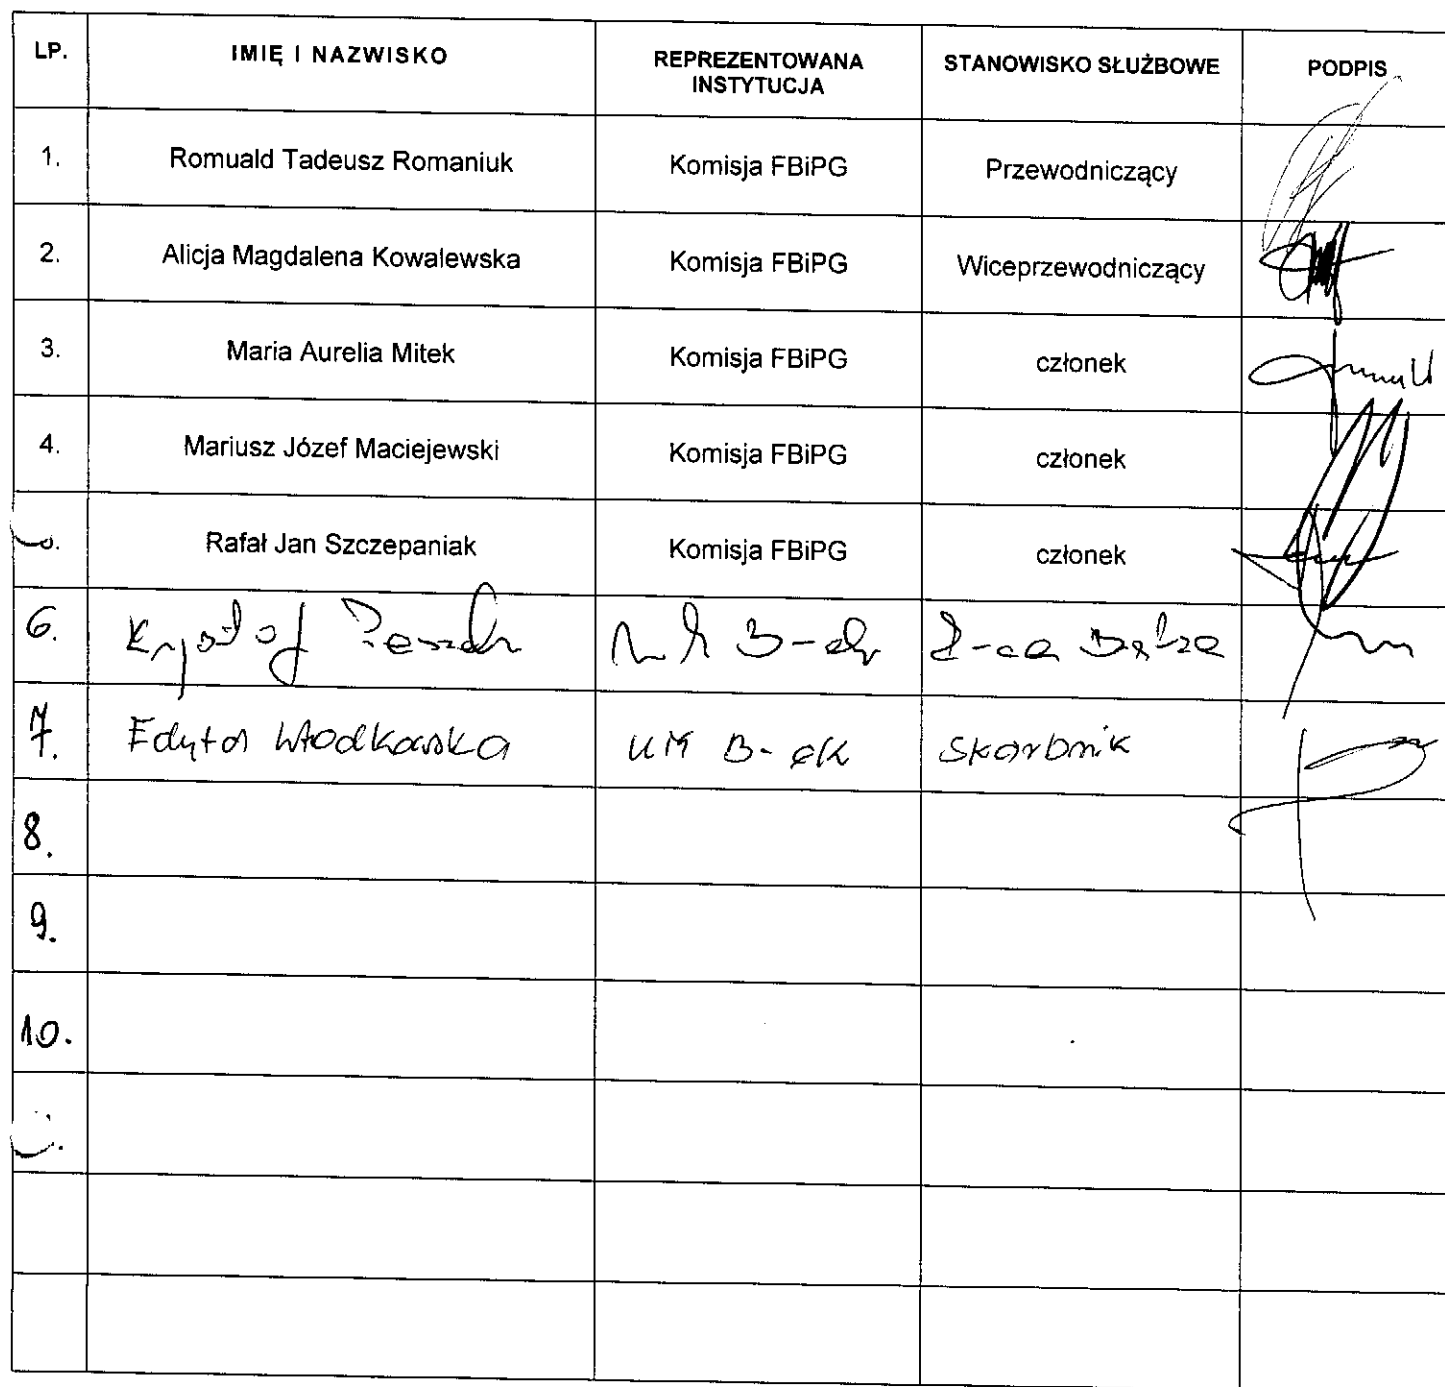 LP. IMIĘ I NAZWISKO REPREZENTOWANA INSTYTUCJA STANOWISKO SŁUŻBOWE PODPIS
1. Romuald Tadeusz Romaniuk Komisja FBiPG Przewodniczący
2. Alicja Magdalena Kowalewska Komisja FBiPG Wiceprzewodniczący
3. Maria Aurelia Mitek Komisja FBiPG członek
4. Mariusz Józef Maciejewski Komisja FBiPG członek
Rafał Jan Szczepaniak Komisja FBiPG członek
6. B-ek Z-ca
7. Edyta UM B-ek Skarbnik
8.
9.
10.